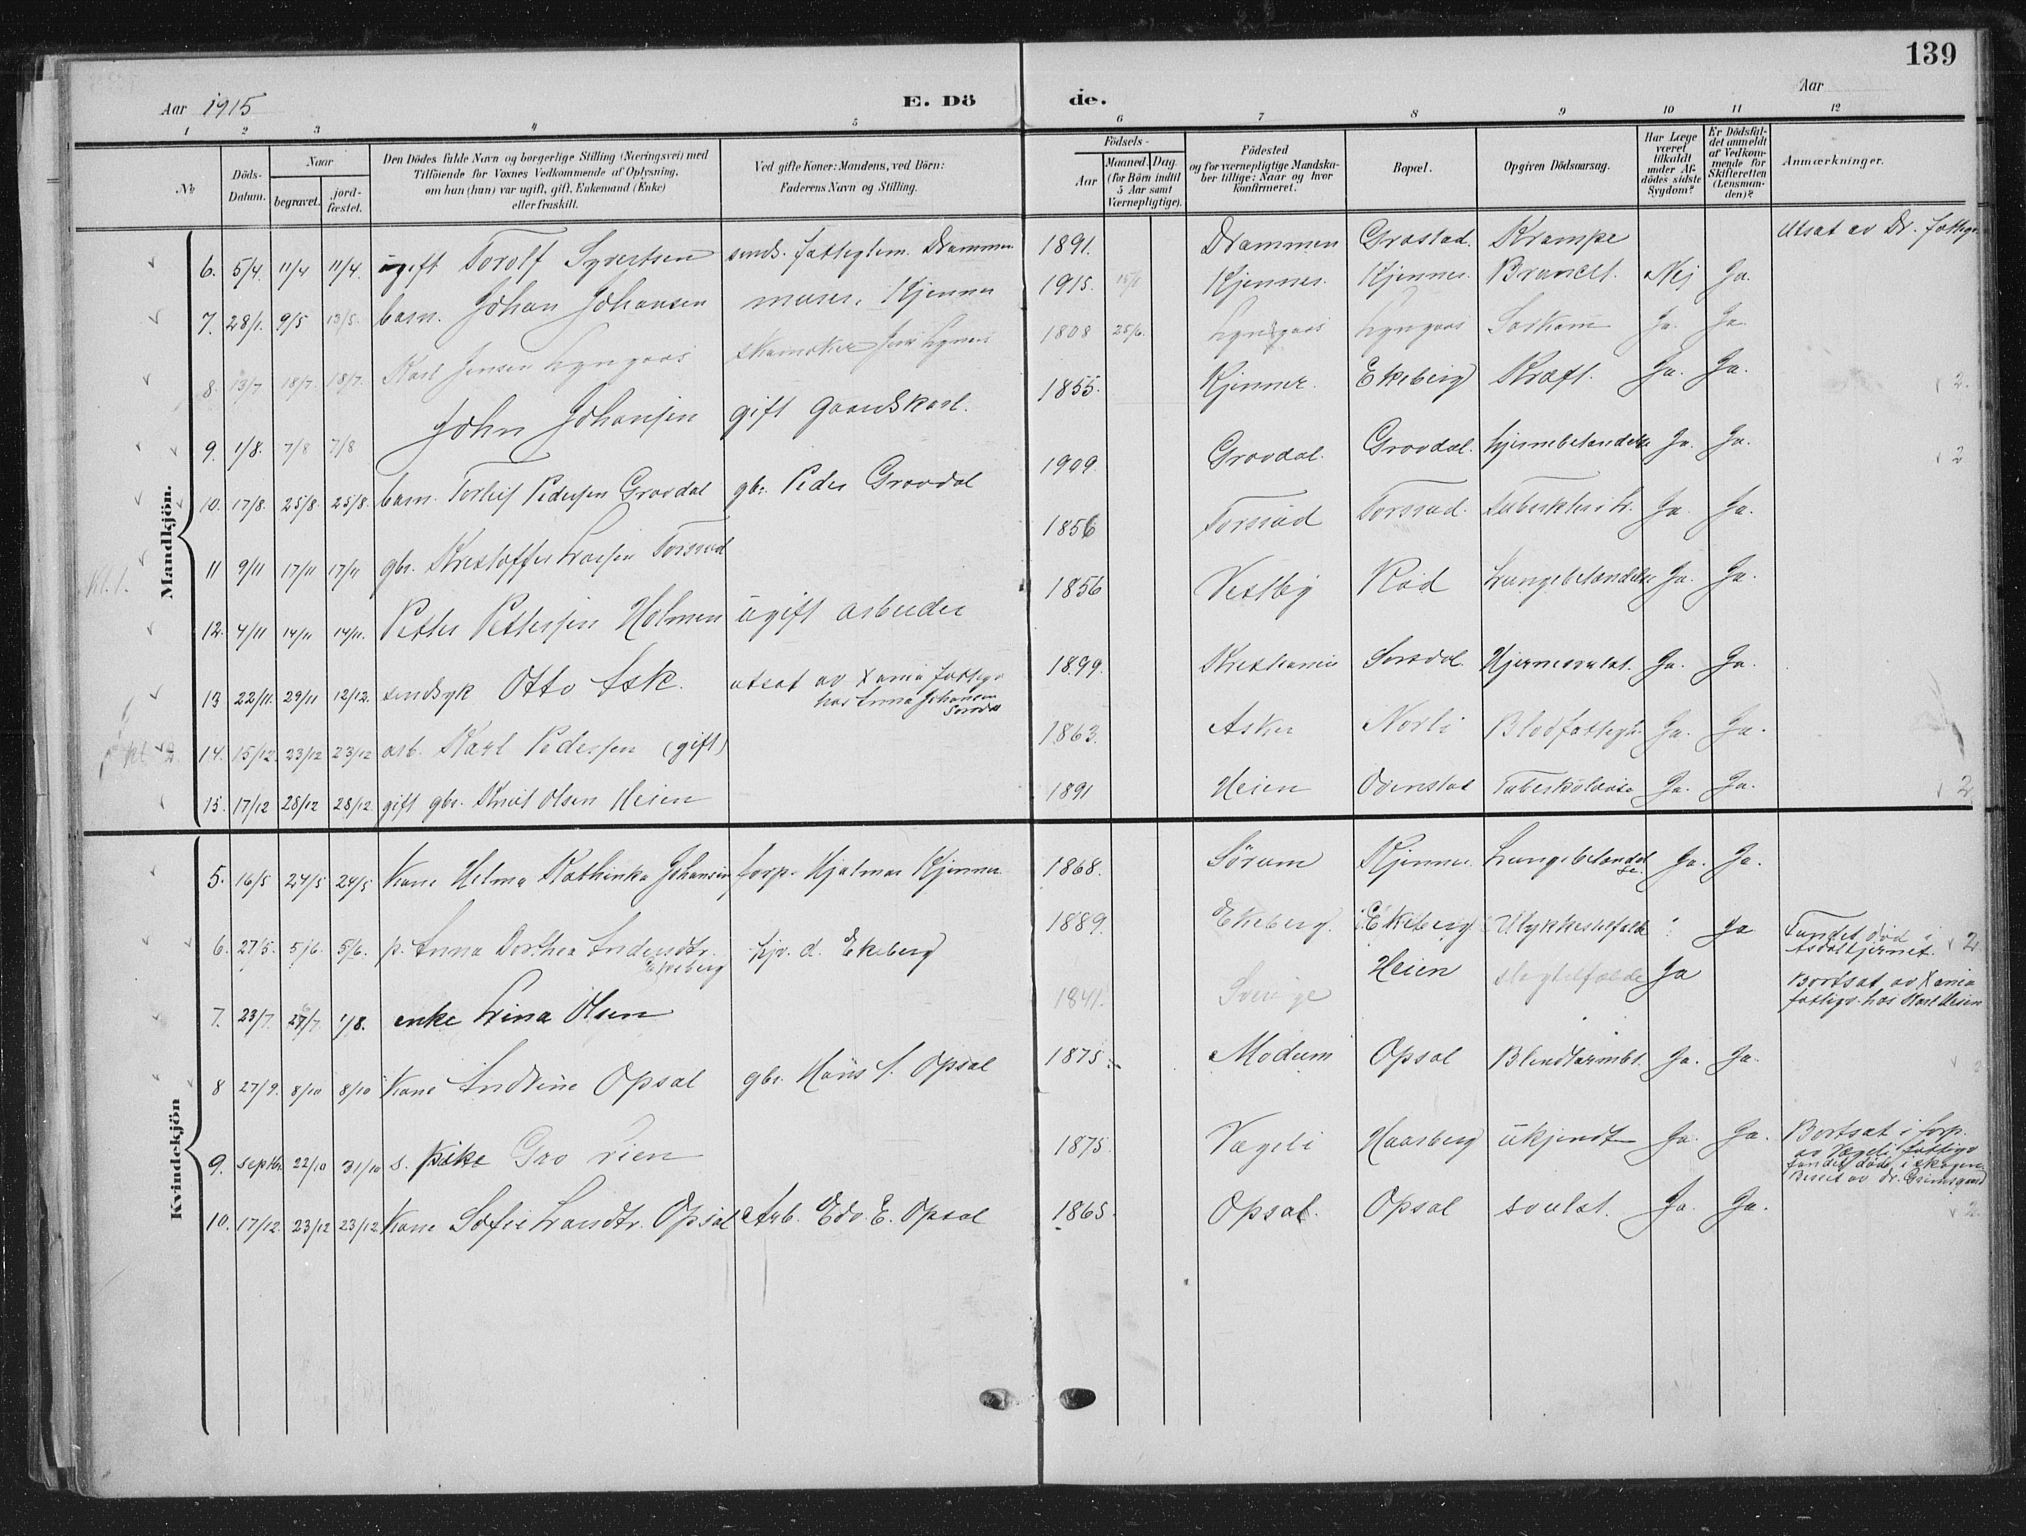 139
Aar 1915
E. Dö de.
Aar
1 2 3 4 5 6 7 8 9 10 11 12
No
Döds-Datum.
Naar
begravet.
jord-fæstet.
Den Dödes fulde Navn og borgerlige Stilling (Næringsvei) med
Tilföiende for Voxnes Vedkommende af Oplysning,
om han (hun) var ugift, gift, Enkemand (Enke)
eller fraskilt.
Ved gifte Koner: Mandens, ved Börn:
Faderens Navn og Stilling.
Födsels-
Aar
Maaned. Dag.
(for Börn indtil
5 Aar samt
Værnepligtige).
Födested
og for værnepligtige Mandska-
ber tillige: Naar og hvor
konfirmeret.
Bopæl.
Opgiven Dödsaarsag.
Har Læge
været
tilkaldt
under Af-
dödes sidste
Sygdom?
Er Dödsfal-
det anmeldt
af Vedkom-
mende for
Skifteretten
(Lensman-
den)?
Anmærkninger.
Mandkjön.
6. 5/4. 11/4 11/4. ugift Torolf Syvertsen sinds. fattiglem. Drammen 1891. Drammen Grostad. Krampe Utsat av Dr. fattigv.
7. 28/1. 9/5 13/5. barn. Johan Johansen murer. Kjenner 1915. Kjennes. Kjennes. Brancit. Nej Ja.
8. 13/7 18/7. 18/7. Karl Jensen Lyngaas 1808 25/6. Lyngaas Lyngaas Sarkom Ja. Ja.
9. 1/8. 7/8 7/8 John Johansen gift gaardskarl. 1855. Kjenner. Ekeberg Kræft. Ja. Ja. 2.
10. 17/8. 25/8 25/8. barn. Torleif Pedersen Grovdal gbr. Peder Grovdal 1909. Grovdal. Grovdal. hjernebetændelse Ja. Ja. 2
11 9/11 17/11 17/11 gbr. Kristoffer Larsen Torsrud 1856 Torsrud Torsrud. Ja. Ja.
12. 4/11 14/11 14/11. Petter Pettersen Holmen ugift arbeider 1856 Vestby Rød Lungebetændelse Ja. Ja.
13 22/11. 29/11 12/12. sindsyk Otto Ask. utsat av Xania fattigv.
hos Anna Johansen
1899. Kristiania Sorsdal. Hjerneovulst. Ja. Ja.
14. 15/12. 23/12 23/12 arb. Karl Pedersen (gift) 1863. Asker Norli Blodfattigd. Ja. Ja.
15. 17/12 28/12 28/12. gift gbr. Knut Olsen Heien 1891 Heien Ovenstad Tuberkulose Ja. Ja. 2
Kvindekjön
5. 16/5 24/5 24/5 Kone Helma Kathinka Johansen forp. Hjalmar Kjenner 1868. Sörum Kjenner. Lungebetændelse. Ja. Ja.
6. 27/5. 5/6. 5/6. p. Anna Dorthea Andersdtr.
Ekeberg
d. Ekeberg 1889. Ekeberg. Ekeberg Ulykkestilfælde Ja Fundet död i
2
7. 23/7. 1/8. enke Lina Olsen 1841. Sverige Heien slagtilfælde Ja Bortsat av Xania
fattigv. hos Karl Heien
8 27/9. 8/10 8/10 Kone Andrine Opsal gbr. Hans A. Opsal 1875. Modum Opsal Blindtarmbt. Ja. Ja. 2
9. septbr. 22/10 31/10 s. pike Gro Lien 1875. Vægeli Haarberg ukjendt Ja. Ja. Bortsat i forp.
av Vægeli fattigv.
fundet död i skogen
10. 17/12. 23/12 23/12 Kone Sofie Opsal Arb. Edv. E. Opsal 1865. Opsal. Opsal svulst. Ja. Ja. 2.